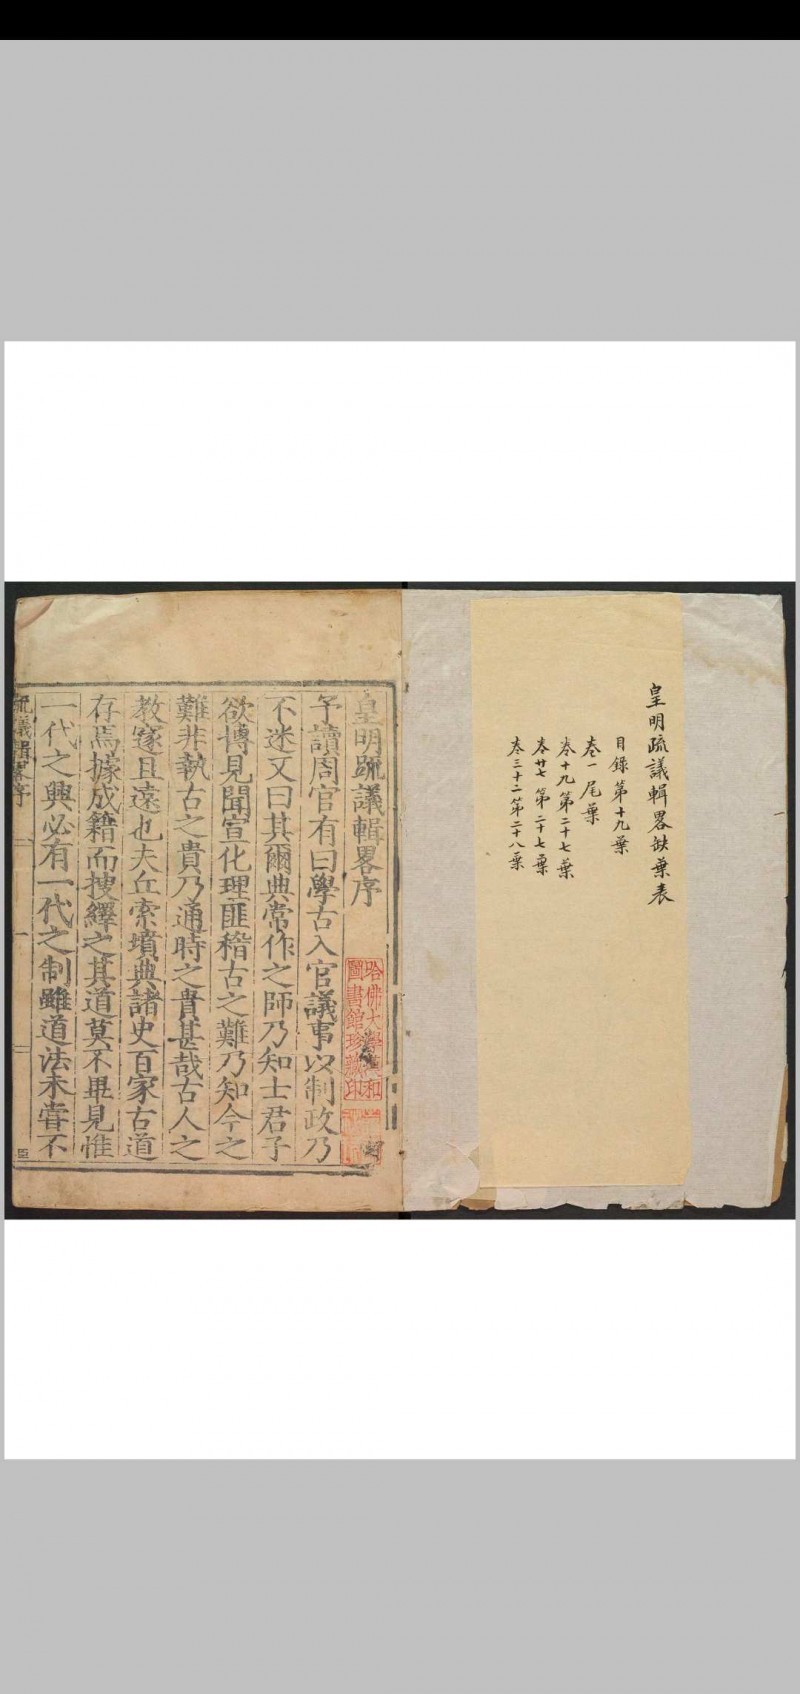 皇明疏議輯畧缺葉表
目錄第十九葉
卷一尾葉
卷十九第二十七葉
卷廿七第二十七葉
卷三十二第二十八葉
皇明疏議輯畧序
哈佛大學漢和
圖書館珍藏印
予讀周官有曰學古入官議事以制政乃
不迷又曰其爾典常作之師乃知士君子
欲博見聞宣化理匪稽古之難乃知今之
難非執古之貴乃通時之貴甚哉古人之
教邃且遠也夫丘索墳典諸史百家古道
存焉據成籍而搜繹之其道莫不畢見惟
一代之興必有一代之制雖道法未嘗不
疏議輯畧序
一